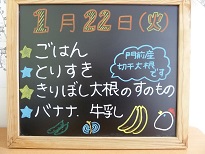 1月22日(火)
ごはん
とりすき
きりぼし大根のすのもの
バナナ.牛乳
門前産
切干大根
です